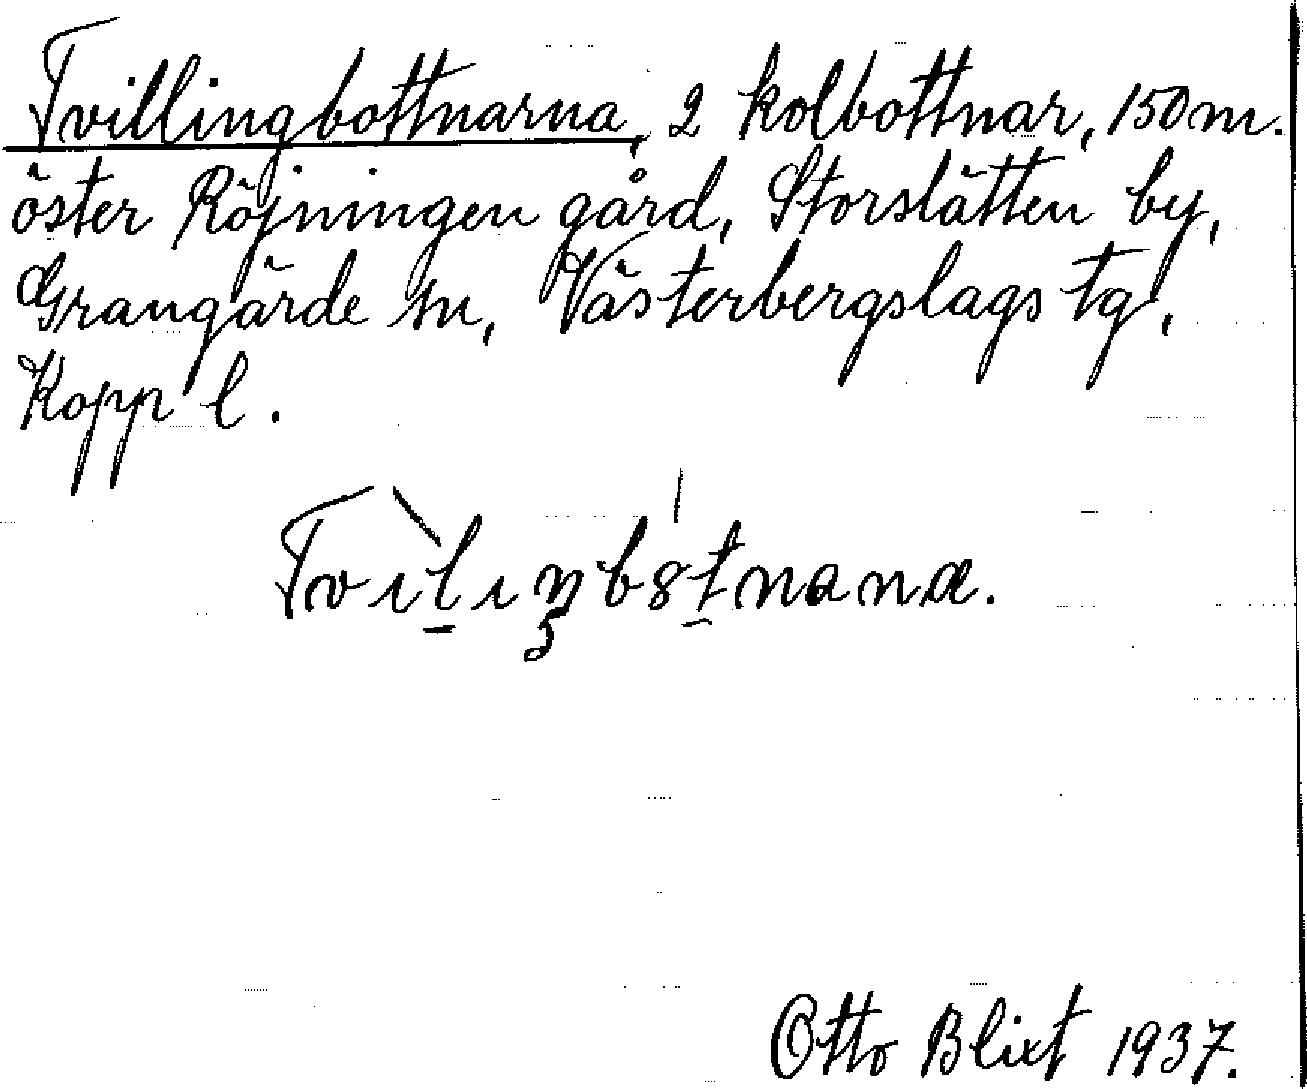 Tvillingbottnarna, 2 kolbottnar, 150 m.
öster Röjningen gård, Storslätten by,
Grangärde sn, Västerbergslags tg,
Kopp l.
Otto Blixt 1937.